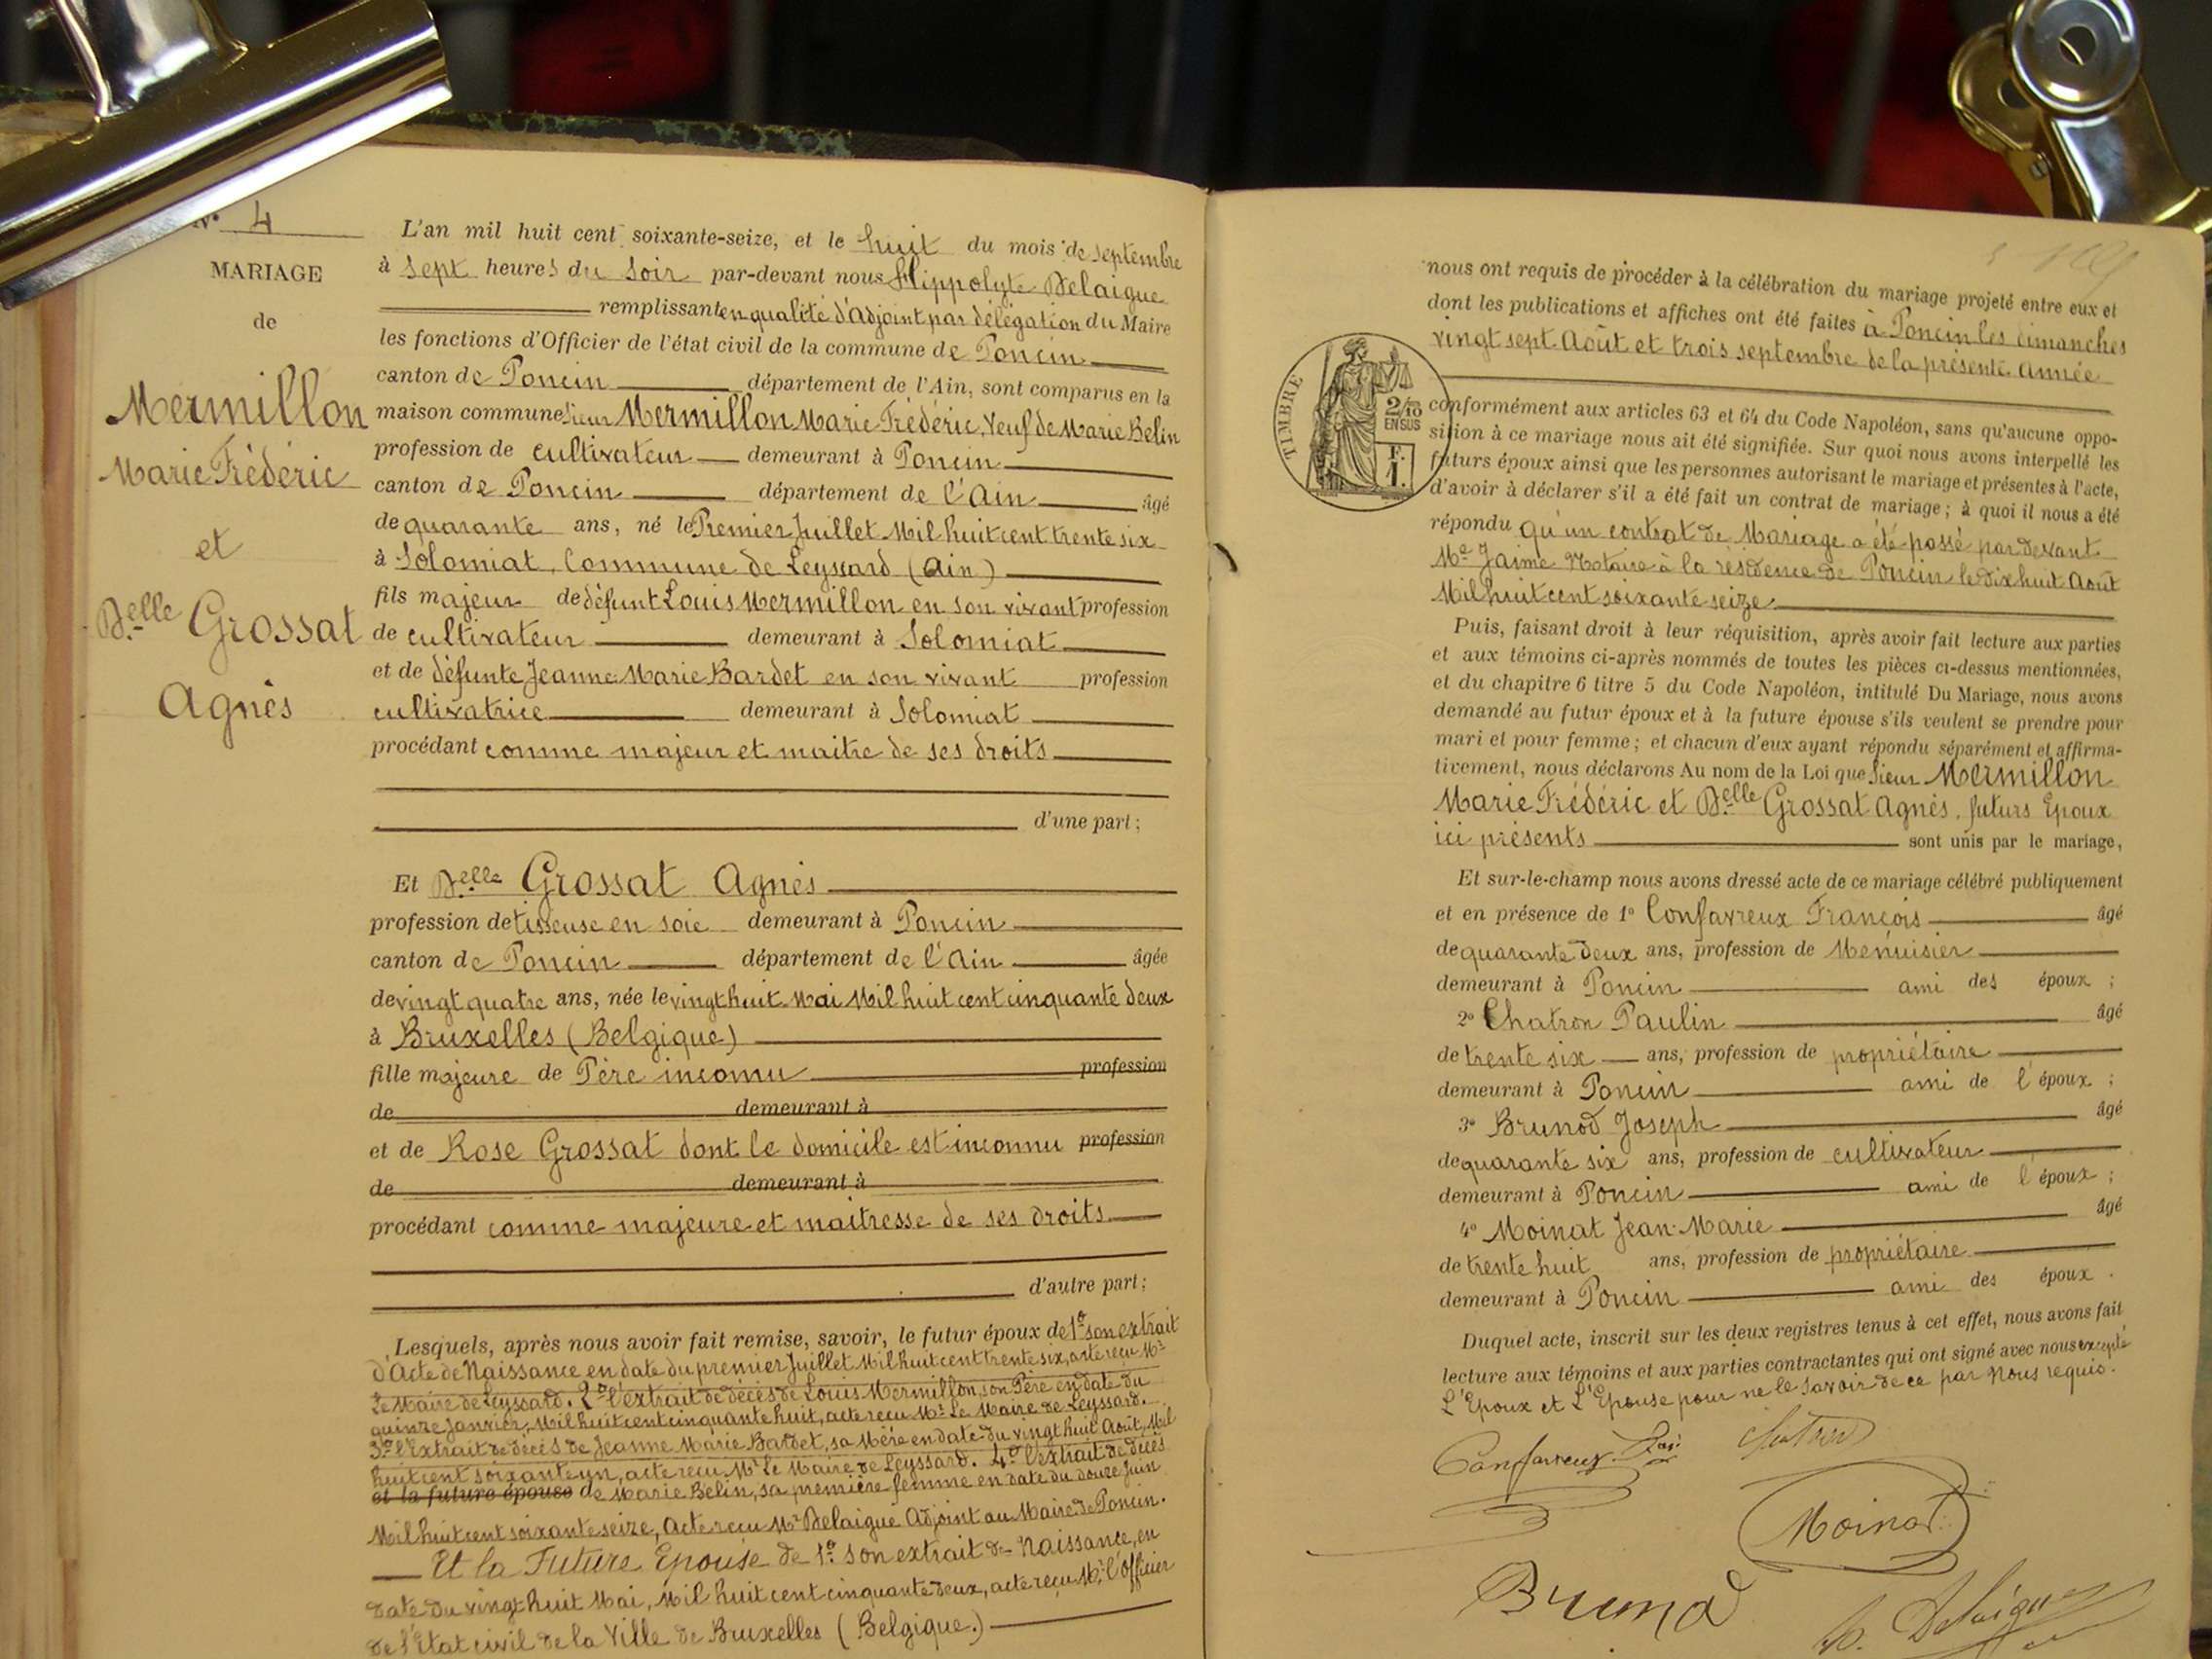 N° 4
MARIAGE
de
Mermillon
Marie Frédéric
et
Delle Grossat
Agnès
L'an mil huit cent soixante-seize, et le huit du mois de septembre
à sept heures du soir par-devant nous Hippolyte Delaigue
remplissant en qualité d'adjoint par délégation du Maire
les fonctions d'Officier de l'état civil de la commune de Poncin
canton de Poncin département de l'Ain, sont comparus en la
maison commune Sieur Mermillon Marie Frédéric, Veuf de Marie Belin
profession de cultivateur demeurant à Poncin
canton de Poncin département de l'Ain âgé
de quarante ans, né le Premier Juillet Mil huit cent trente six
à Solomiat, Commune de Leyssard (Ain)
fils majeur de défunt Louis Mermillon en son vivant profession
de cultivateur demeurant à Solomiat
et de défunte Jeanne Marie Bardet en son vivant profession
cultivatrice demeurant à Solomiat
procédant comme majeur et maitre de ses droits
d'une part;
Et Delle Grossat Agnès
profession de tisseuse en soie demeurant à Poncin
canton de Poncin département de l'Ain âgée
de vingt quatre ans, née le vingt huit Mai Mil huit cent cinquante deux
à Bruxelles (Belgique)
fille majeure de Père inconnu profession
de demeurant à
et de Rose Grossat dont le domicile est inconnu profession
de demeurant à
procédant comme majeure et maitresse de ses droits
d'autre part;
Lesquels, après nous avoir fait remise, savoir, le futur époux de 1° son extrait
d'Acte de Naissance en date du premier Juillet Mil huit cent trente six, acte reçu Mr
Le Maire de Leyssard. 2° l'extrait de décès de Louis Mermillon, son Père en date du
quinze Janvier, Mil huit cent cinquante huit, acte reçu Mr Le Maire de Leyssard.
3° l'Extrait de décès de Jeanne Marie Bardet, sa Mère en date du vingt huit Août, Mil
huit cent soixante un, acte reçu Mr Le Maire de Leyssard. 4° l'extrait de décès
et la future épouse de Marie Belin, sa première femme en date du douze Juin
Mil huit cent soixante seize, Acte reçu Mr Delaigue Adjoint au Maire de Poncin.
Et la Future Epouse de 1° son extrait de Naissance, en
date du vingt huit Mai, Mil huit cent cinquante deux, acte reçu Mr l'Officier
de l'Etat civil de la Ville de Bruxelles (Belgique.)
nous ont requis de procéder à la célébration du mariage projeté entre eux et
dont les publications et affiches ont été faites à Poncin les dimanches
vingt sept Août et trois septembre de la présente Année
TIMBRE
2/10
EN SUS
F.
1.
conformément aux articles 63 et 64 du Code Napoléon, sans qu'aucune oppo-
sition à ce mariage nous ait été signifiée. Sur quoi nous avons interpellé les
futurs époux ainsi que les personnes autorisant le mariage et présentes à l'acte,
d'avoir à déclarer s'il a été fait un contrat de mariage; à quoi il nous a été
répondu qu'un contrat de Mariage a été passé par devant
Me Jaime Notaire à la résidence de Poncin le dix huit Août
Mil huit cent soixante seize.
Puis, faisant droit à leur réquisition, après avoir fait lecture aux parties
et aux témoins ci-après nommés de toutes les pièces ci-dessus mentionnées,
et du chapitre 6 titre 5 du Code Napoléon, intitulé Du Mariage, nous avons
demandé au futur époux et à la future épouse s'ils veulent se prendre pour
mari et pour femme; et chacun d'eux ayant répondu séparément et affirma-
tivement, nous déclarons Au nom de la Loi que Sieur Mermillon
Marie Frédéric et Delle Grossat Agnès, futurs Epoux
ici présents sont unis par le mariage,
Et sur-le-champ nous avons dressé acte de ce mariage célébré publiquement
et en présence de 1° Confavreux François âgé
de quarante deux ans, profession de Menuisier
demeurant à Poncin ami des époux;
2° Chatron Paulin âgé
de trente six ans, profession de propriétaire
demeurant à Poncin ami de l'époux;
3° Brunod Joseph âgé
de quarante six ans, profession de cultivateur
demeurant à Poncin ami de l'époux;
4° Moinat Jean-Marie âgé
de trente huit ans, profession de propriétaire
demeurant à Poncin ami des époux.
Duquel acte, inscrit sur les deux registres tenus à cet effet, nous avons fait
lecture aux témoins et aux parties contractantes qui ont signé avec nous excepté
L'Epoux et L'Epouse pour ne le savoir de ce par Nous requis.
Confavreux
Moinat
Brunod
h. Delaigue